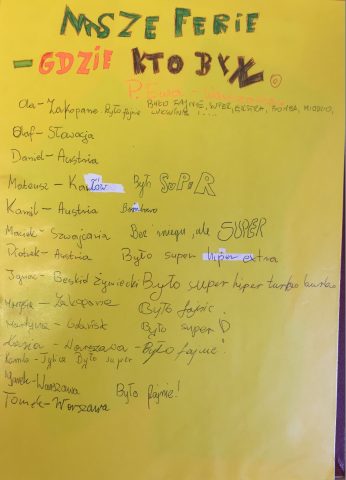 NASZE FERIE
- GDZIE KTO BYŁ.
P. Ewa -
Ola - Zakopane Było fajne BYŁO FAJNIE, SUPER, EXTRA, BOMBA, MIODZIO,
Olaf - Słowacja
Daniel - Austria
Mateusz - Było SUPER
Kamil - Austria Bombowo
Maciek - Szwajcaria Bez śniegu, ale SUPER
Piotrek - Austria Było super hiper extra
Ignac - Beskid Żywiecki Było super hiper turbo
Marysia - Zakopane Było fajnie.
Martyna - Gdańsk Było super!
- Warszawa - Było fajnie!
Kamila - Było super
Marek - Warszawa Było fajnie!
Tomek - Warszawa